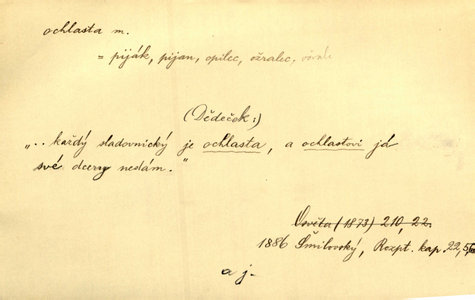 ochlasta m.
= piják, pijan, opilec, ožralec,
(Dědeček:)
„.. každý sladovnický je ochlasta, a ochlastovi já
své dcery nedám."
Osvěta (1873) 210, 22.
1886 Šmilovský, Rozpt. kap. 22,
a j.